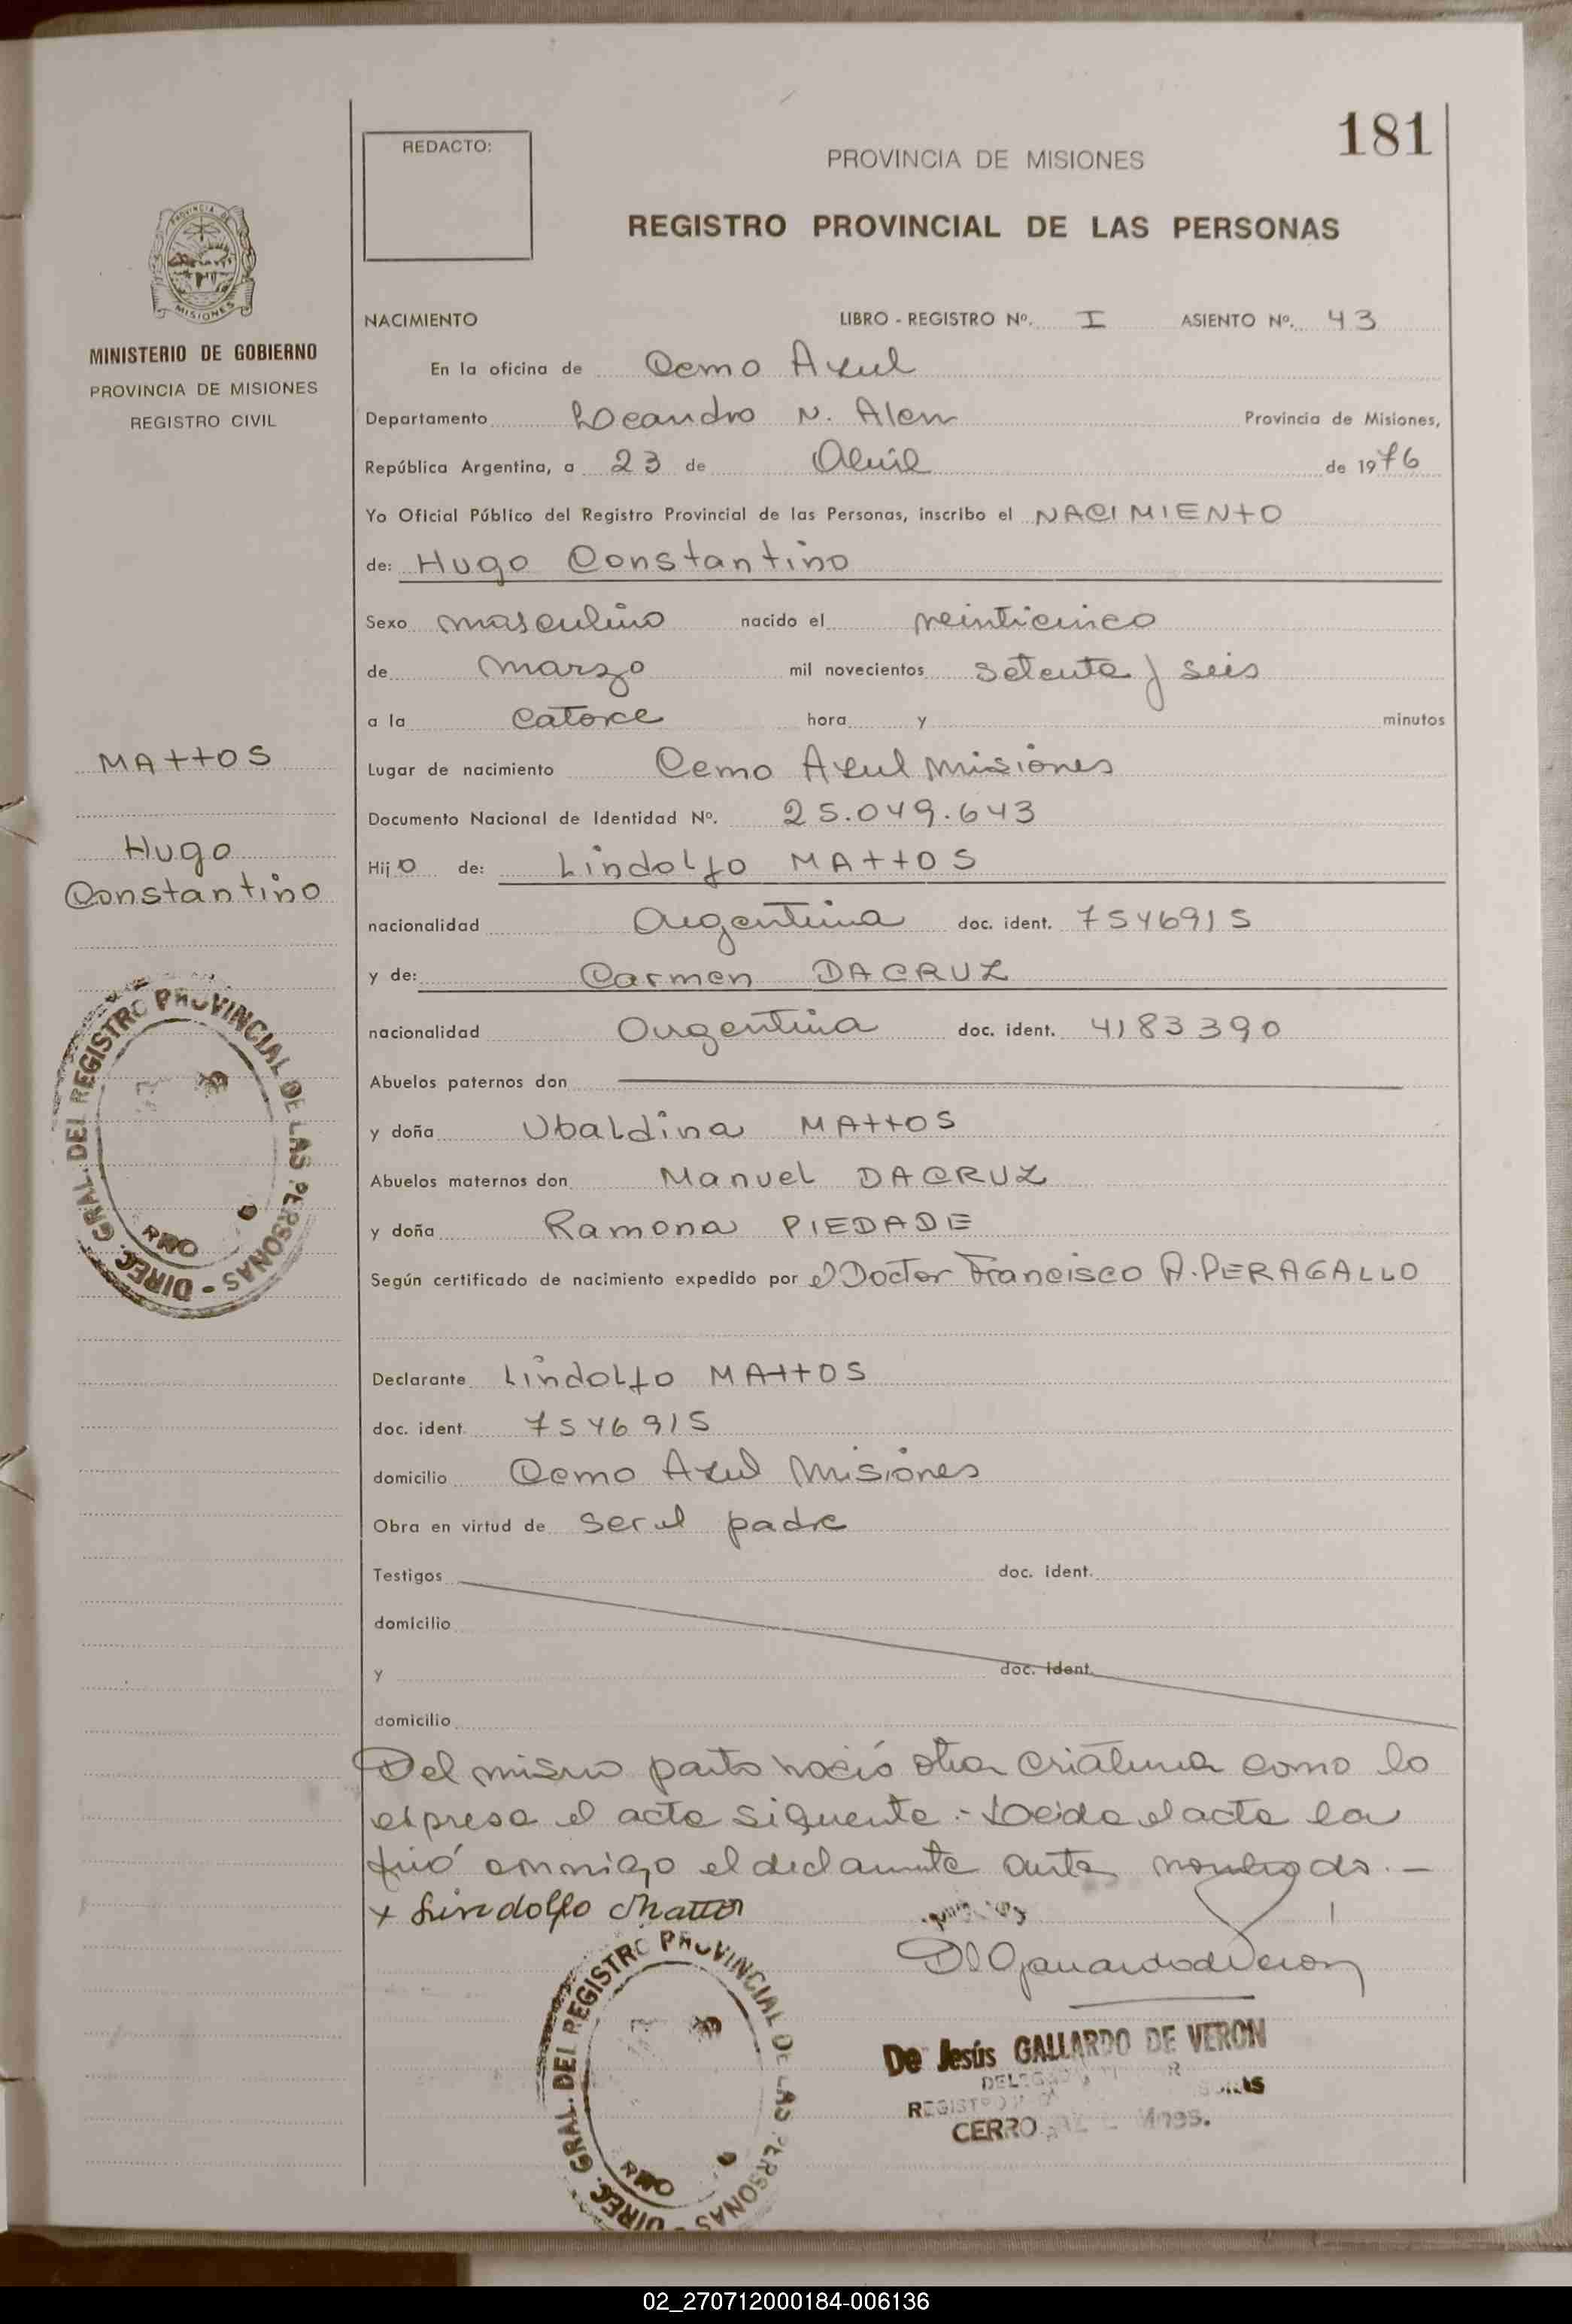 181
REDACTO:
PROVINCIA DE MISIONES
REGISTRO PROVINCIAL DE LAS PERSONAS
MINISTERIO DE GOBIERNO
PROVINCIA DE MISIONES
REGISTRO CIVIL
NACIMIENTO LIBRO - REGISTRO Nº. I ASIENTO Nº. 43
En la oficina de Cerro Azul
Departamento Leandro N. Alem Provincia de Misiones,
República Argentina, a 23 de Abril de 1976
Yo Oficial Público del Registro Provincial de las Personas, inscribo el NACIMIENTO
de: Hugo Constantino
Sexo masculino nacido el veinticinco
de marzo mil novecientos setenta y seis
a la catorce hora y minutos
MATTOS
Hugo
Constantino
Lugar de nacimiento Cerro Azul Misiones
Documento Nacional de Identidad Nº. 25.049.643
Hijo de: Lindolfo MATTOS
nacionalidad Argentina doc. ident. 7546915
y de: Carmen DACRUZ
nacionalidad Argentina doc. ident. 4183390
Abuelos paternos don
y doña Ubaldina MATTOS
Abuelos maternos don Manuel DACRUZ
y doña Ramona PIEDADE
Según certificado de nacimiento expedido por el Doctor Francisco A. PERAGALLO
DIREC. GRAL. DEL REGISTRO PROVINCIAL DE LAS PERSONAS
Declarante Lindolfo MATTOS
doc. ident. 7546915
domicilio Cerro Azul Misiones
Obra en virtud de ser el padre
Testigos doc. ident.
domicilio
y doc. ident.
domicilio
Del mismo parto nació otra criatura como lo
expresa el acta siguente.- Leida el acta la
firmó conmigo el declarante antes nombrado.-
x Lindolfo Mattos
DIREC. GRAL. DEL REGISTRO PROVINCIAL DE LAS PERSONAS
De Jesús GALLARDO DE VERON
CERRO
02_270712000184-006136